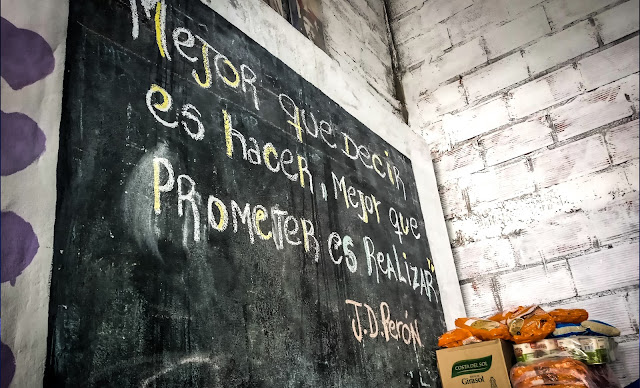 Mejor que decir
es hacer, mejor que
PROMETER es Realizar"
J.D.Perón
COSTA DEL SOL
Girasol